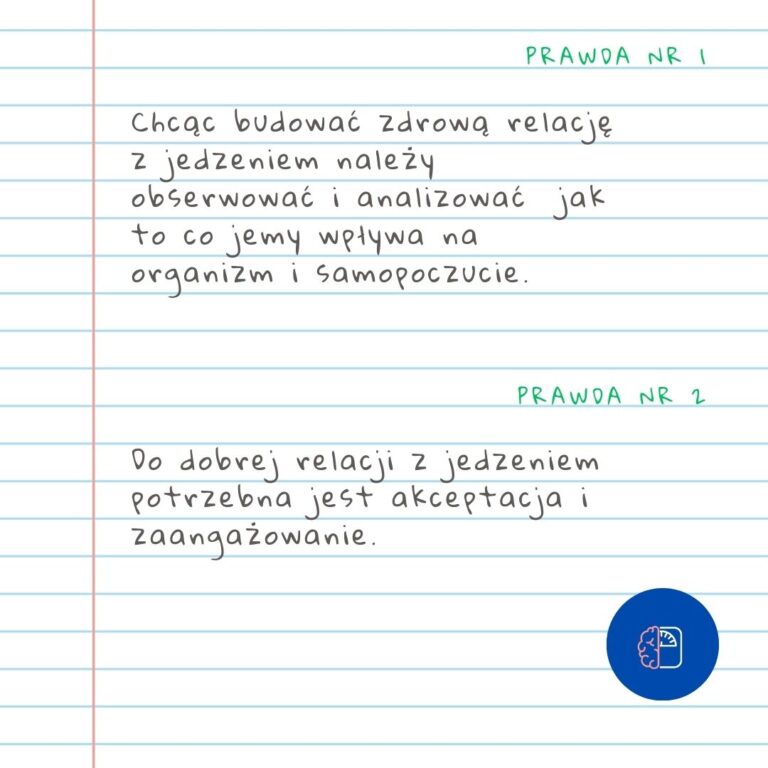 PRAWDA NR 1
Chcąc budować zdrową relację
z jedzeniem należy
obserwować i analizować jak
to co jemy wpływa na
organizm i samopoczucie.
PRAWDA NR 2
Do dobrej relacji z jedzeniem
potrzebna jest akceptacja i
zaangażowanie.